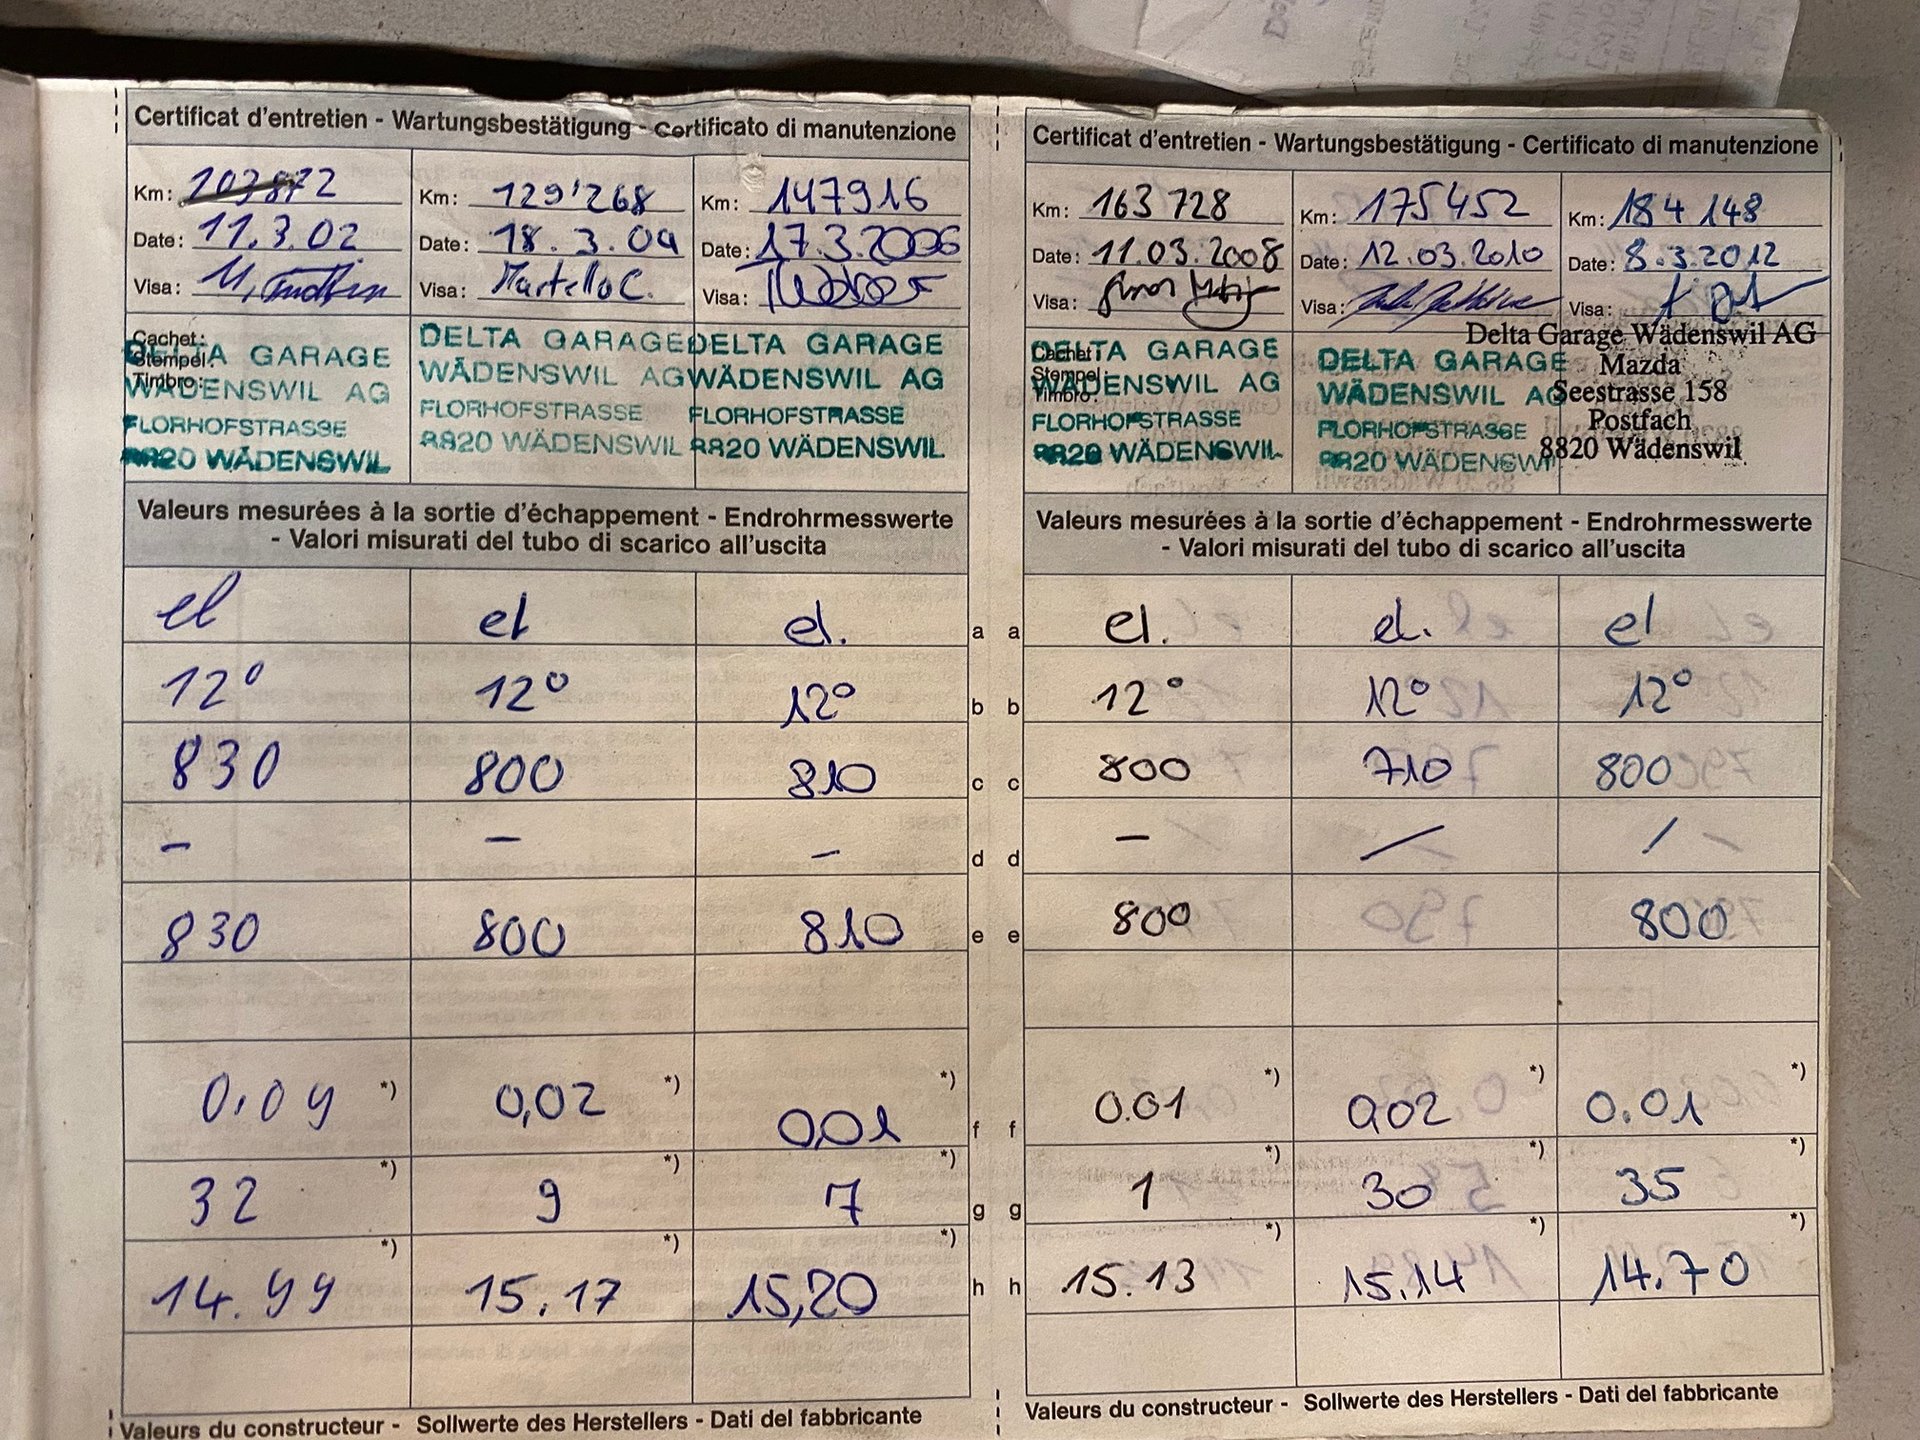 Certificat d'entretien - Wartungsbestätigung - Certificato di manutenzione
Km: 103872
Date: 11.3.02
Visa:
Cachet:
Stempel:
Timbro:
DELTA GARAGE
WÄDENSWIL AG
FLORHOFSTRASSE
8820 WÄDENSWIL
Km: 129'268
Date: 18.3.04
Visa: Martello C.
DELTA GARAGE
WÄDENSWIL AG
FLORHOFSTRASSE
8820 WÄDENSWIL
Km: 147916
Date: 17.3.2006
Visa:
DELTA GARAGE
WÄDENSWIL AG
FLORHOFSTRASSE
8820 WÄDENSWIL
Valeurs mesurées à la sortie d'échappement - Endrohrmesswerte
- Valori misurati del tubo di scarico all'uscita
el el el. a
12° 12° 12° b
830 800 810 c
- - - d
830 800 810 e
0.09 *) 0,02 *) 0,01 *) f
32 *) 9 *) 7 *) g
14.99 *) 15.17 *) 15,20 *) h
Valeurs du constructeur - Sollwerte des Herstellers - Dati del fabbricante
Certificat d'entretien - Wartungsbestätigung - Certificato di manutenzione
Km: 163 728
Date: 11.03.2008
Visa:
Cachet:
Stempel:
Timbro:
DELTA GARAGE
WÄDENSWIL AG
FLORHOFSTRASSE
8820 WÄDENSWIL
Km: 175452
Date: 12.03.2010
Visa:
DELTA GARAGE
WÄDENSWIL AG
FLORHOFSTRASSE
8820 WÄDENSWI
Km: 184 148
Date: 8.3.2012
Visa:
Delta Garage Wädenswil AG
Mazda
Seestrasse 158
Postfach
8820 Wädenswil
Valeurs mesurées à la sortie d'échappement - Endrohrmesswerte
- Valori misurati del tubo di scarico all'uscita
a el. el. el
b 12° 12° 12°
c 800 710 800
d - / /
e 800 800
f 0.01 *) 0,02 *) 0.01 *)
g 1 *) 30 *) 35 *)
h 15.13 *) 15.14 *) 14.70 *)
Valeurs du constructeur - Sollwerte des Herstellers - Dati del fabbricante